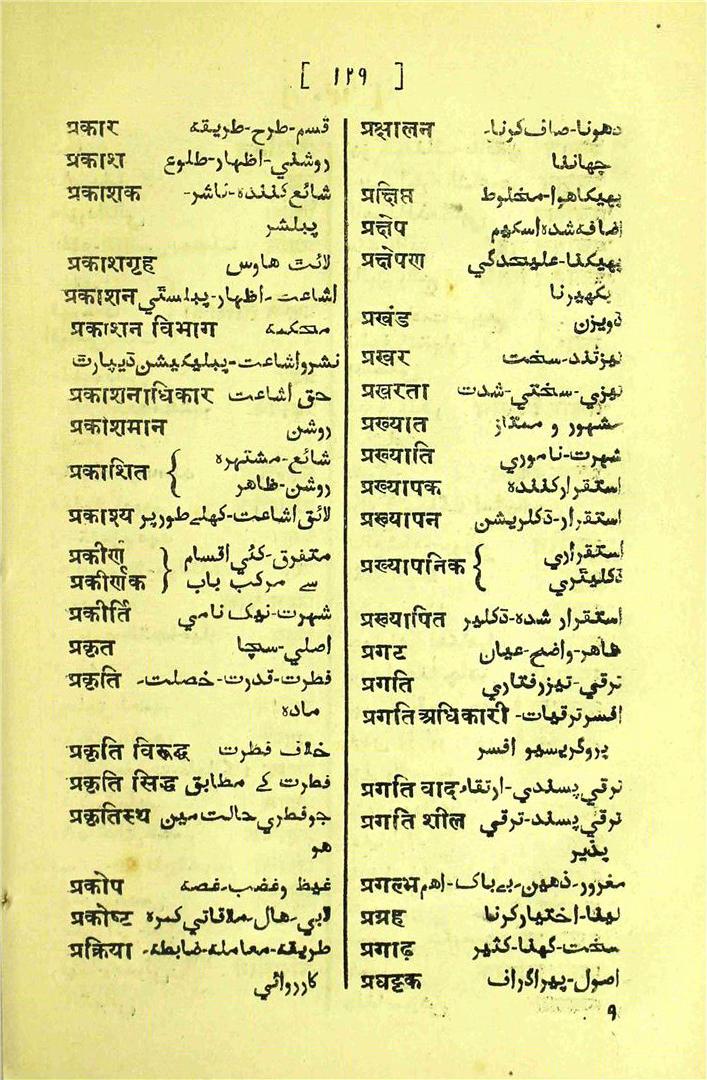 [ ١٢٩ ]
प्रकार قسم-طرح-طريقه
प्रकाश روشني-اظهار-طلوع
प्रकाशक شائع کننده-ناشر-
پبلشر
प्रकाशगृह لائٹ هاوس
प्रकाशन اشاعت-اظهار-پبلسٹي
प्रकाशन विभाग محکمه
نشرواشاعت-پبليکيشن ڈيپارٹ
प्रकाशनाधिकार حق اشاعت
प्रकाशमान روشن
प्रकाशित { شائع-مشتهره
روشن-ظاهر
प्रकाश्य لائق اشاعت-کھلے طور پر
प्रकीर्ण } متفرق-کئي اقسام
प्रकीर्णक } سے مرکب باب
प्रकीर्ति شهرت-نيک نامي
प्रकृत اصلي-سچا
प्रकृति فطرت-قدرت-خصلت-
ماده
प्रकृति विरूद्ध خلاف فطرت
प्रकृति सिद्ध فطرت کے مطابق
प्रकृतिस्थ جو فطري حالت مين
هو
प्रकोप غيظ و غضب-غصه
प्रकोष्ट لابي-هال-ملاقاتي کمره
प्रक्रिया طريقه-معامله-ضابطه-
کارروائي
प्रक्षालन دھونا-صاف کرنا-
چھاننا
प्रक्षिप्त پھينکا هوا-مخلوط
प्रक्षेप اضافه شده اسکيم
प्रक्षेपण پھينکنا-عليحدگي
بکھيرنا
प्रखंड ڈويزن
प्रखर تيز تند-سخت
प्रखरता تيزي-سختي-شدت
प्रख्यात مشهور و ممتاز
प्रख्याति شهرت-ناموري
प्रख्यापक استقرار کننده
प्रख्यापन استقرار-ڈکلريشن
प्रख्यापनिक { استقراري
ڈکليٹري
प्रख्यापित استقرار شده-ڈکلير
प्रगट ظاهر-واضح-عيان
प्रगति ترقي-تيز رفتاري
प्रगति अधिकारी افسر ترقيات-
پروگريسيو افسر
प्रगति वाद ترقي پسندي-ارتقاء
प्रगति शील ترقي پسند-ترقي
پذير
प्रगल्भ مغرور-ذهين-بے باک-اهم
प्रग्रह لينا-اختيار کرنا
प्रगाढ़ سخت-گھنا-کثير
प्रघट्टक اصول-پيراگراف
९